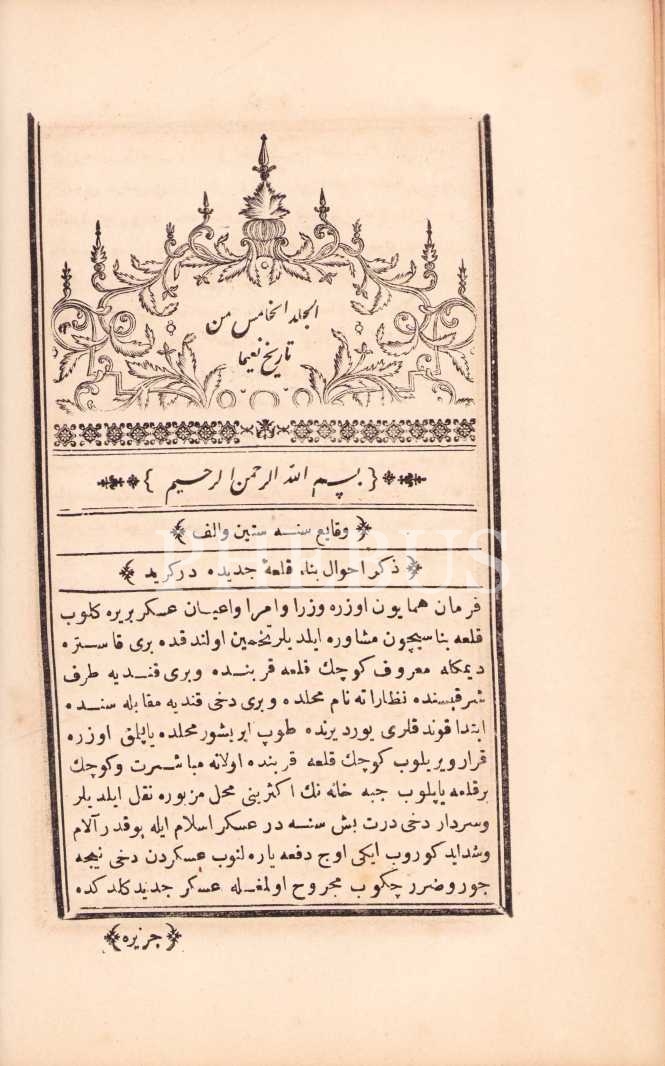 الجلد الخامس من
تاريخ نعيما
بسم الله الرحمن الرحيم
وقايع سنه ستين والف
ذكر احوال بناء قلعهٔ جديده در كريد
PHEBUS
فرمان همايون اوزره وزرا وامرا واعيان عسكر بريره كلوب
قلعه بناسيچون مشاوره ايلديلر تخمين اولندقده برى قاستره
ديمكله معروف كوچك قلعه قربنده وبرى قنديه طرف
شرقيسنده نظاراته نام محلده وبرى دخى قنديه مقابله سنده
ابتدا قوندقلرى يورديرنده طوپ ايريشور محلده ياپلق اوزره
قرار ويريلوب كوچك قلعه قربنده اولانه مباشرت وكوچك
برقلعه ياپلوب جبه خانه نك اكثرينى محل مزبوره نقل ايلديلر
وسردار دخى درت بش سنه در عسكر اسلام ايله بوقدر آلام
وشدايد كوروب ايكى اوچ دفعه ياره لنوب عسكردن دخى نيجه
جور وضرر چكوب مجروح اولمغله عسكر جديد كلدكده
جزيره